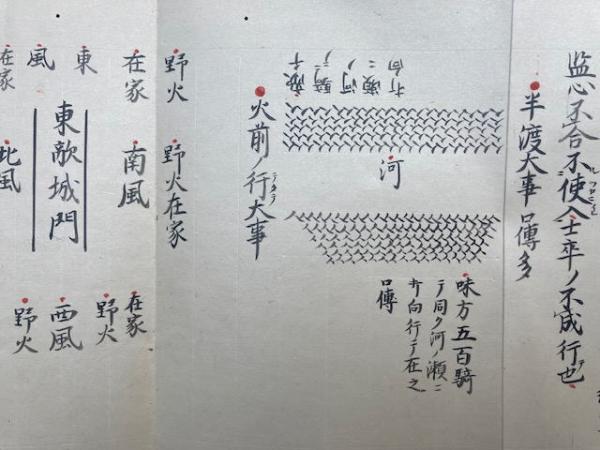 监心不合不使入士卒ノ不成行也
半渡大事 口傳多
打向ニ
瀬河ノ
騎ニテ
河
味方五百騎
テ同ク河ノ瀬ニ
打向行テ在之
口傳
火前ノ行大事
テタテ
野火
野火在家
在家
南風
野火
在家
東
東敵城門
西風
風
野火
在家
北風